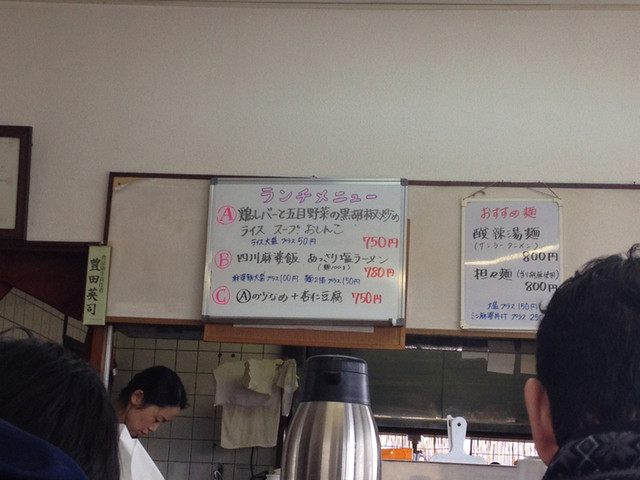 ランチメニュー
Ⓐ 鶏レバーと五目野菜の黒胡椒炒め
ライス スープ おしんこ
ライス大盛 プラス50円
750円
Ⓑ 四川麻婆飯 あっさり塩ラーメン
780円
麻婆飯大盛プラス100円 麺2倍プラス150円
Ⓒ Ⓐのハーフ + 杏仁豆腐 750円
おすすめ麺
酸辣湯麺
(サンラータンメン)
800円
担々麺
800円
大盛プラス150円
ミニ麻婆丼付プラス25
豊田英司